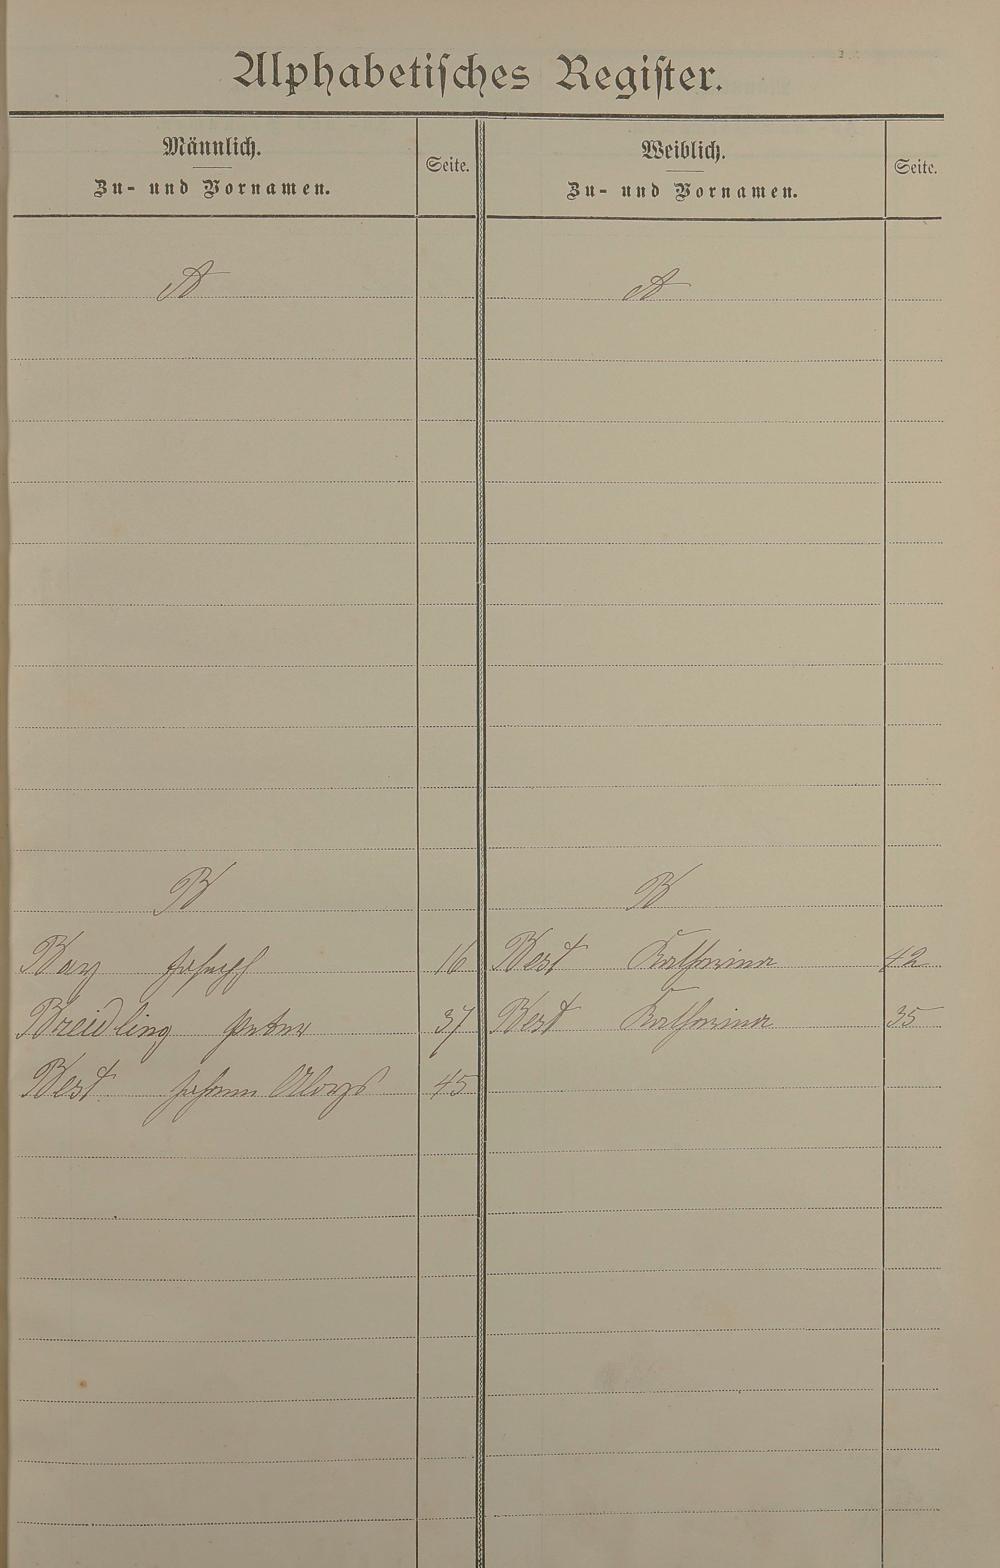 Alphabetisches Register.
Männlich. Seite. Weiblich. Seite.
Zu- und Vornamen. Zu- und Vornamen.
A A
B B
Bay Joseph 16 Best Katharina 42
Breidling Peter 37 Best Katharina 35
Best Johann Aloys 45